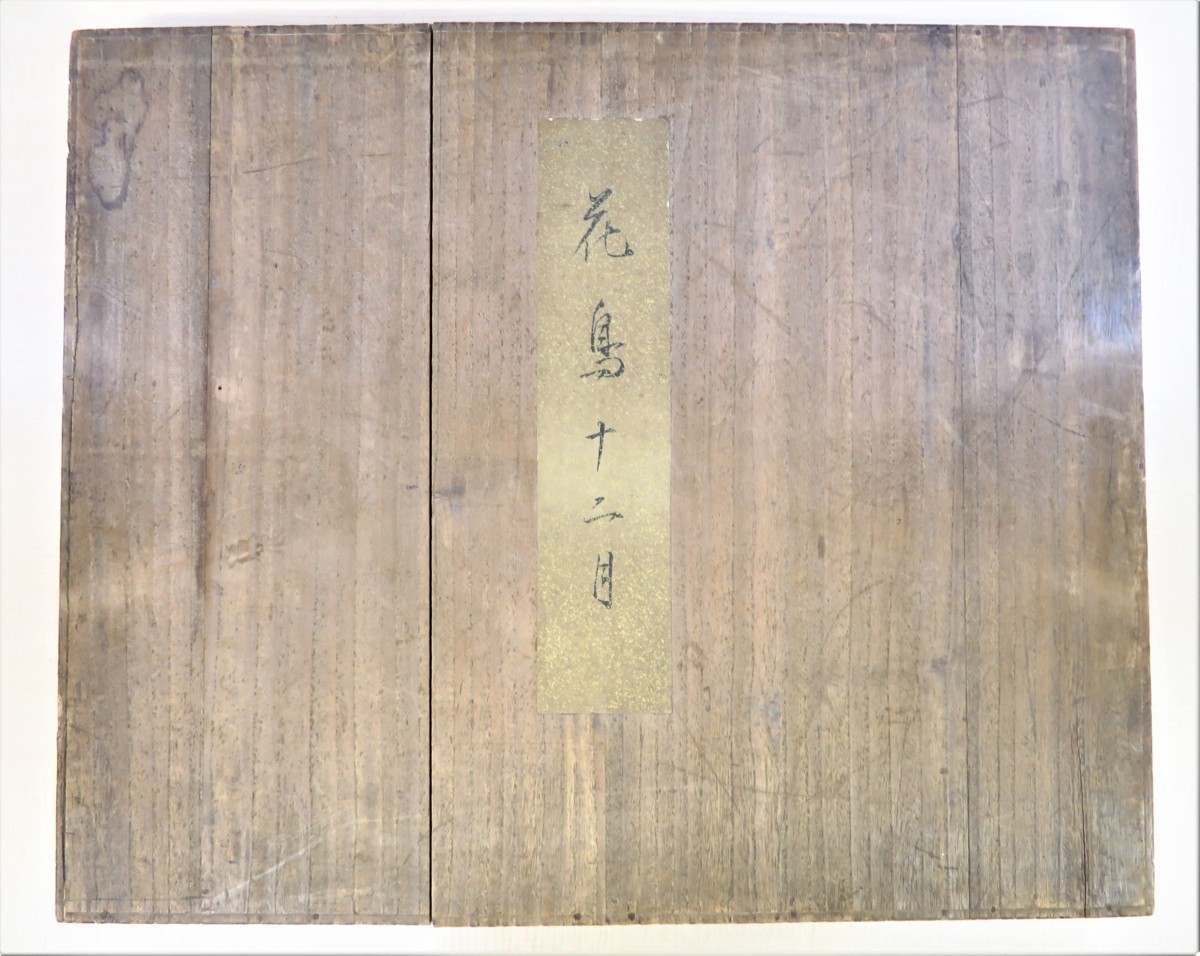 花鳥十二月